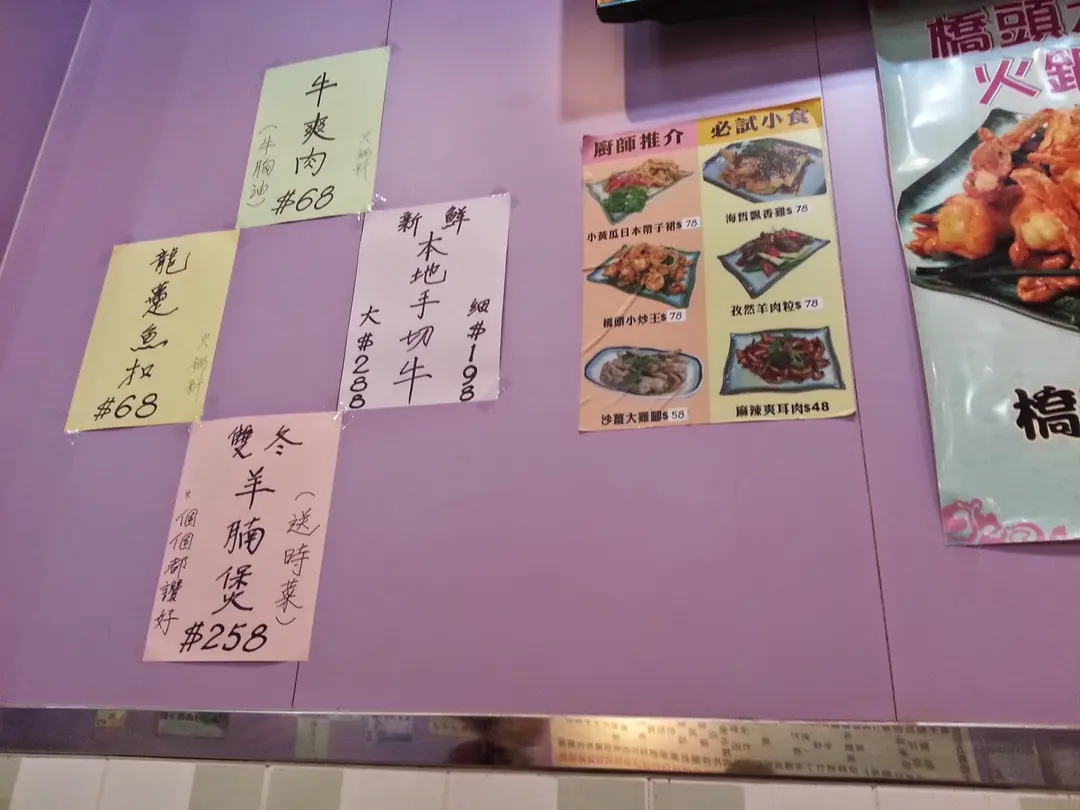 牛爽肉
(牛胸油)
火鍋料
$68
新鮮
本地手切牛
細$198
大$288
龍躉魚扣
火鍋料
$68
雙冬
羊腩煲
(送時菜)
個個都讚好
$258
廚師推介
必試小食
小黃瓜日本帶子裙$78
海哲飄香雞$78
橋頭小炒王$78
孜然羊肉粒$78
沙薑大雞腳$58
麻辣爽耳肉$48
橋頭
火鍋
橋